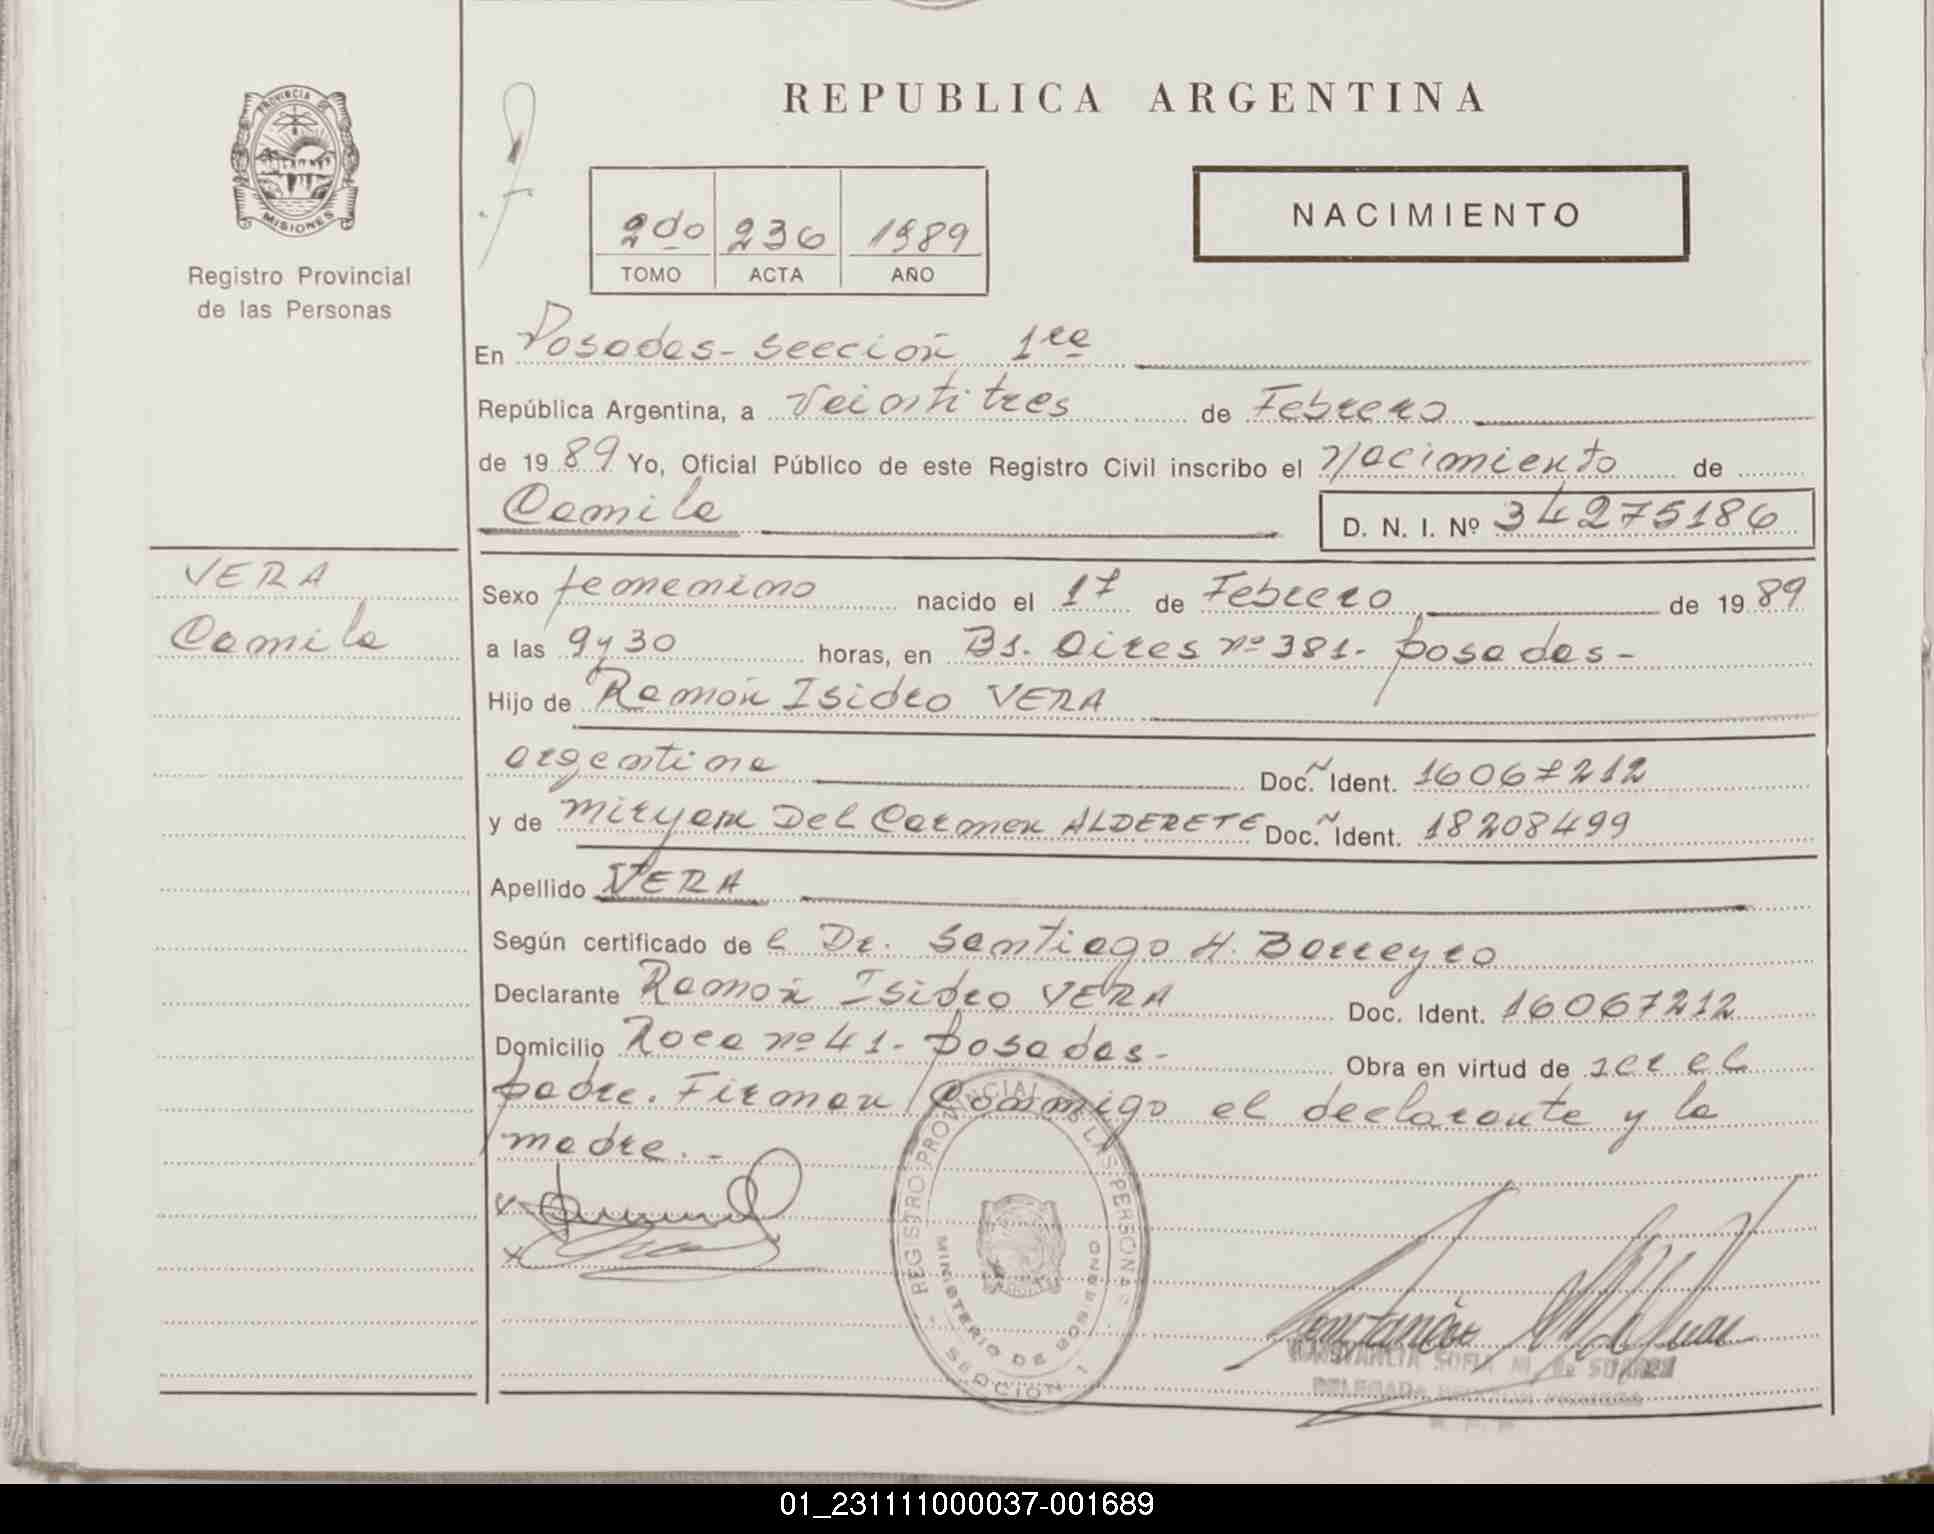 REPUBLICA ARGENTINA
PROVINCIA DE
MISIONES
Registro Provincial
de las Personas
2do 236 1989
TOMO ACTA AÑO
NACIMIENTO
En Posadas - Sección 1ra
República Argentina, a Veintitres de Febrero
de 1989 Yo, Oficial Público de este Registro Civil inscribo el Nacimiento de
Camila D. N. I. Nº 34275186
VERA
Camila
Sexo femenino nacido el 17 de Febrero de 1989
a las 9 y 30 horas, en Bs. Aires nº 381. posadas -
Hijo de Ramón Isidro VERA
argentina Doc. Ident. 16067212
y de Miryam Del Carmen ALDERETE Doc. Ident. 18208499
Apellido VERA
Según certificado de l Dr. Santiago H. Barreyro
Declarante Ramón Isidro VERA Doc. Ident. 16067212
Domicilio Roca nº 41. posadas - Obra en virtud de ser el
padre. Firman conmigo el declarante y la
madre. -
REGISTRO PROVINCIAL DE LAS PERSONAS
MINISTERIO DE GOBIERNO
SECCION 1
CONSTANCIA SOFIA M. de SUAREZ
DELEGADA
01_231111000037-001689